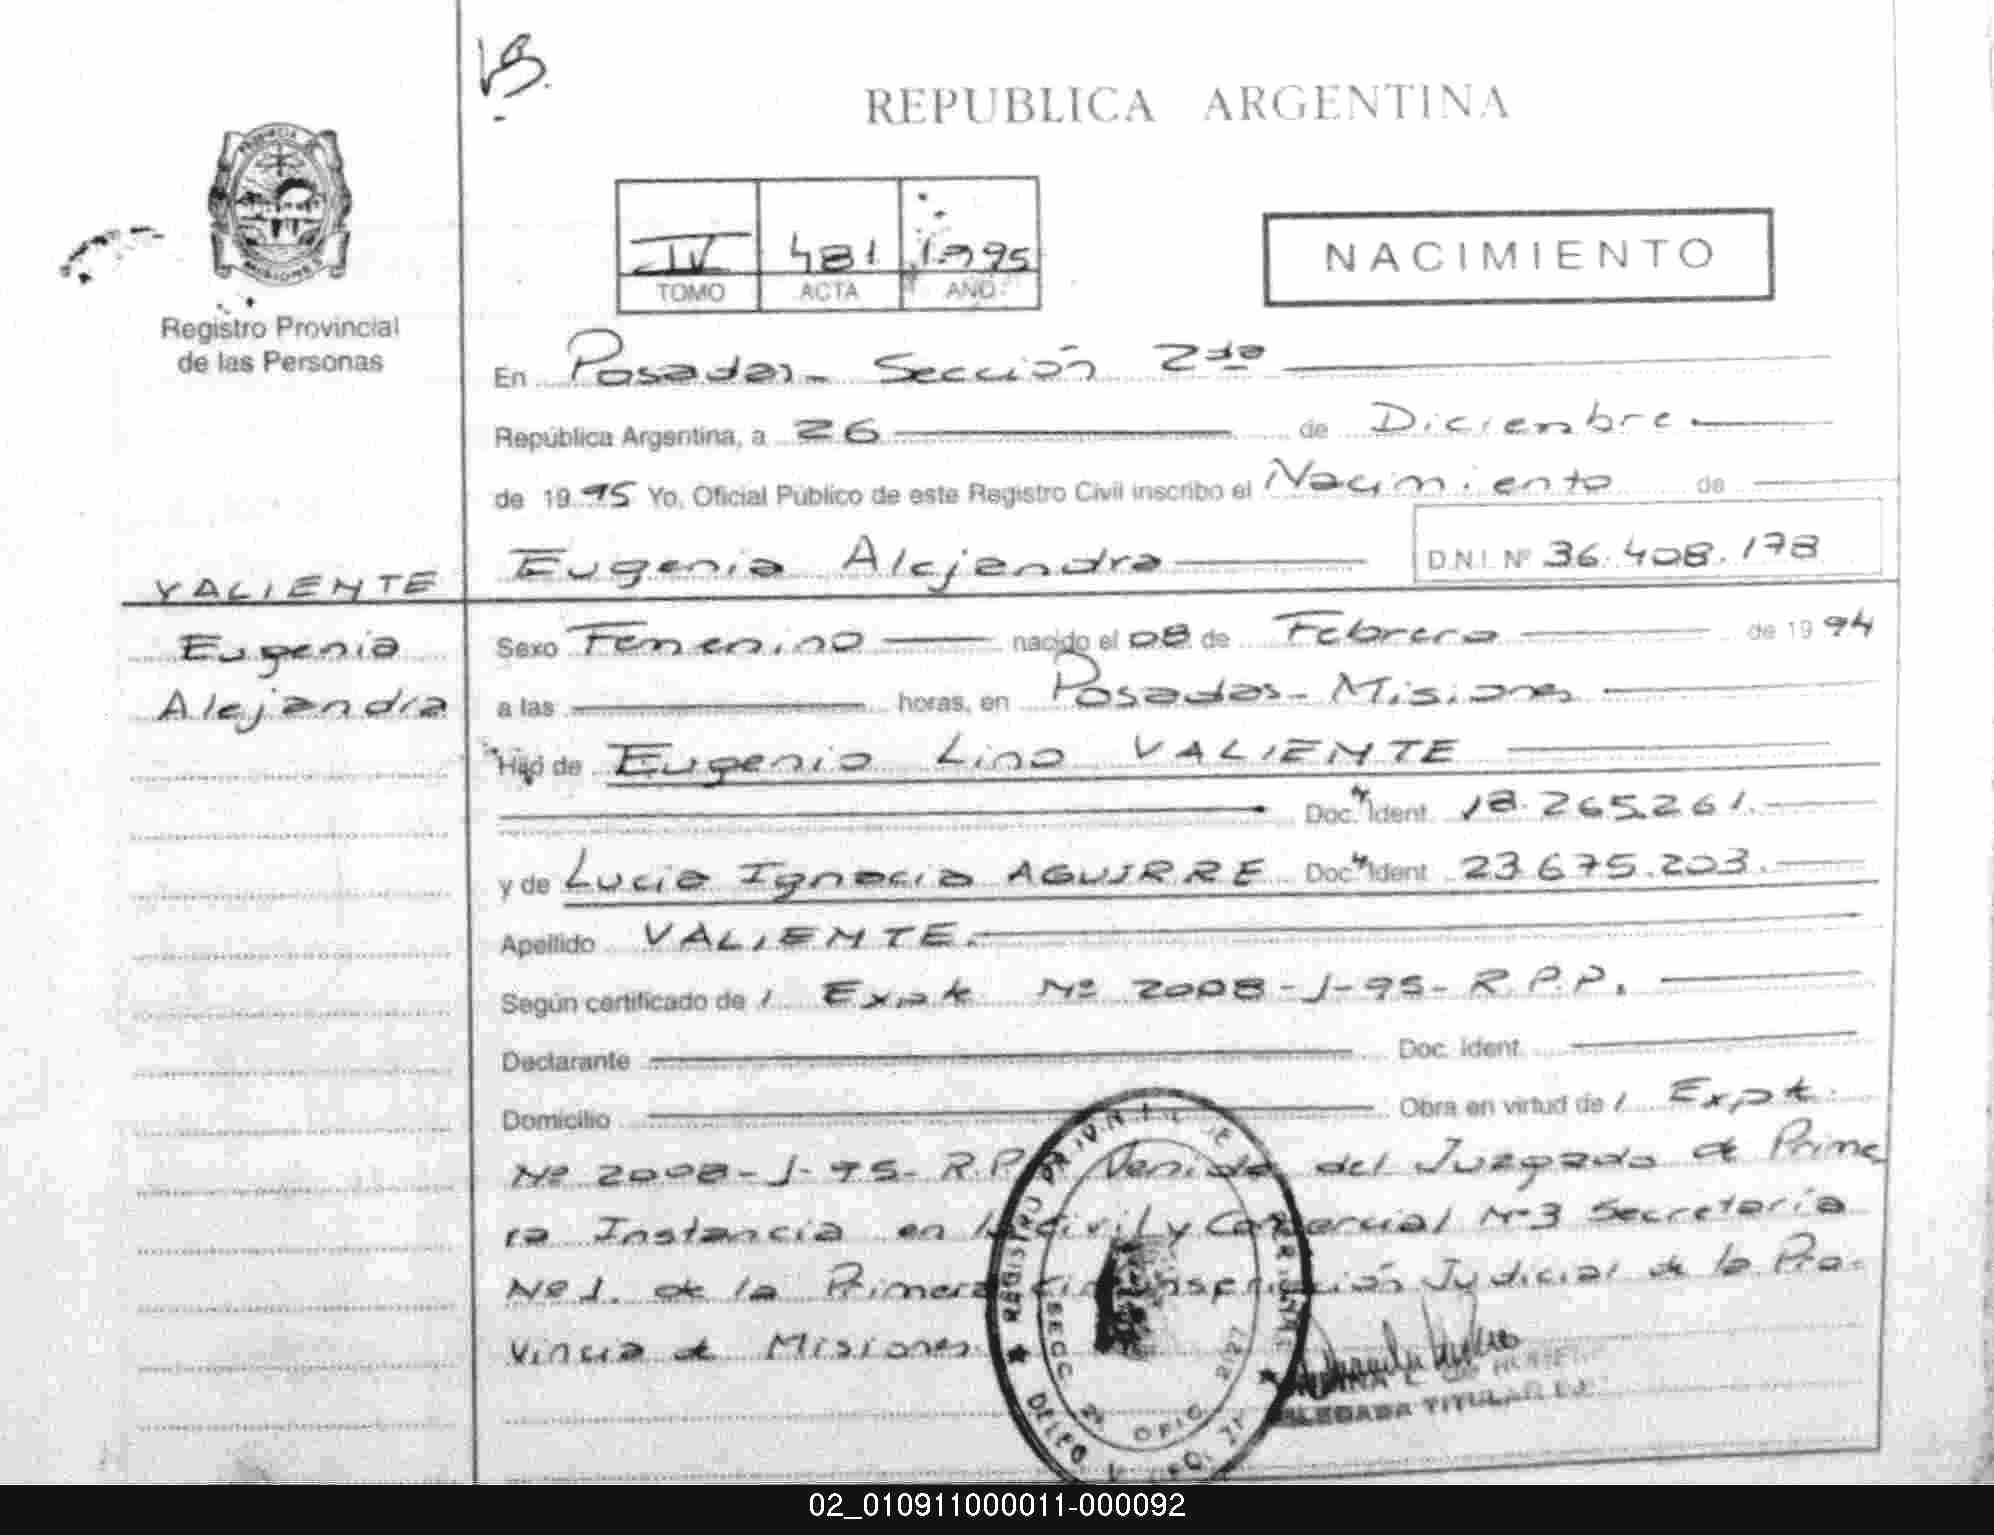 REPUBLICA ARGENTINA
PROVINCIA DE MISIONES
Registro Provincial
de las Personas
IV 481 1995
TOMO ACTA AÑO
NACIMIENTO
En Posadas - Sección 2da
República Argentina, a 26 de Diciembre
de 1995 Yo, Oficial Público de este Registro Civil inscribo el Nacimiento de
Eugenia Alejandra D.N.I. Nº 36.408.178
VALIENTE
Eugenia
Alejandra
Sexo Femenino nacido el 08 de Febrero de 1994
a las horas, en Posadas - Misiones
Hijo de Eugenio Lino VALIENTE
Doc. Ident. 18.265.261.
y de Lucia Ignacia AGUIRRE Doc. Ident. 23.675.203.
Apellido VALIENTE.
Según certificado de / Expte Nº 2008-J-95- R.P.P.
Declarante Doc. Ident.
Domicilio Obra en virtud de / Expte.
Nº 2008-J-95- R.P. Venido del Juzgado de Prime
ra Instancia en lo Civil y Comercial Nº3 Secretaría
Nº1. de la Primera Circunscripción Judicial de la Pro-
vincia de Misiones
SECC 2ª OFIC.
DELEGADA TITULAR
02_010911000011-000092